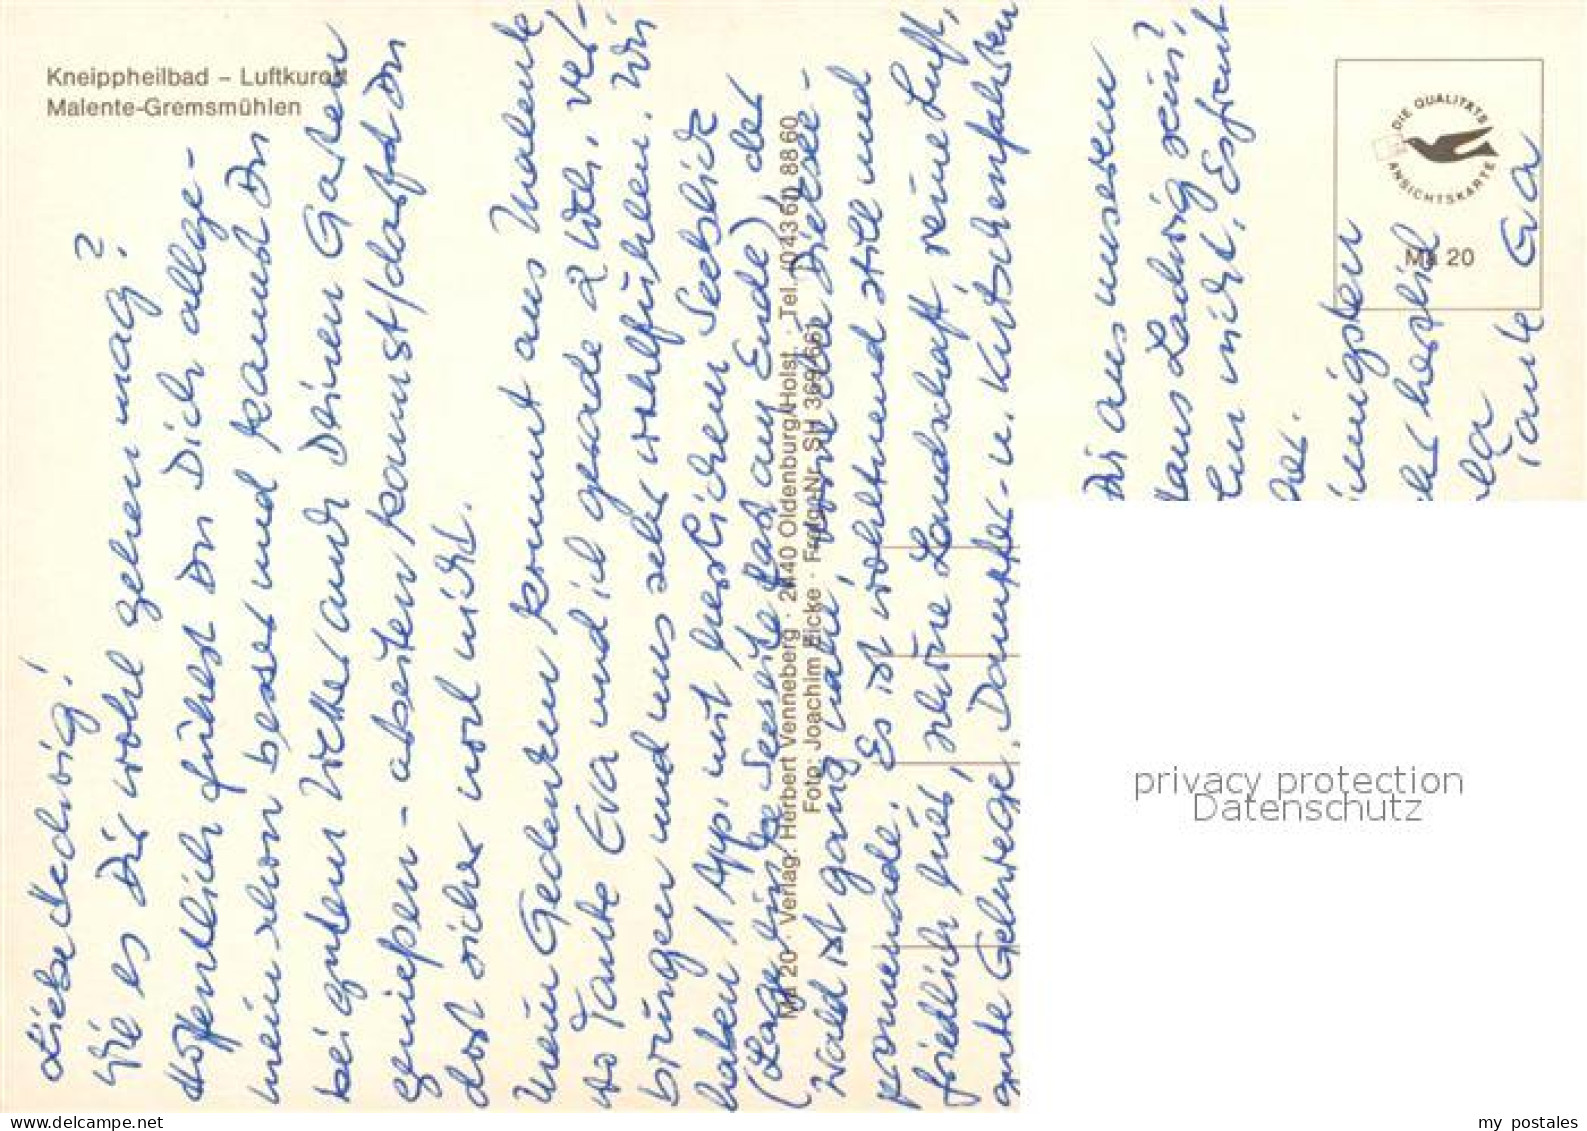 Kneippheilbad – Luftkurort
Malente-Gremsmühlen
DIE QUALITÄTS
ANSICHTSKARTE
Ma 20
Liebe Hedwig!
Wie es Dir wohl gehen mag?
Hoffentlich fühlst Du Dich allge-
mein schon besser und kannst Du
bei gutem Wetter auch Deinen Garten
genießen - arbeiten kannst/darfst Du
dort sicher noch nicht.
Mein Gedenken kommt aus Malente
wo Tante Eva und ich gerade 2 Wch. ver-
bringen und uns sehr wohlfühlen. Wir
haben 1 App. mit herrlichem Seeblick
(Lage linke Seeseite fast am Ende), der
Wald ist ganz nahe, die Dieksee-
promenade. Es ist wohltuend still und
friedlich hier, schöne Landschaft reine Luft,
gute Gehwege, Dampfer- u. Kutschenfahrten
Ma 20 · Verlag: Herbert Venneberg · 2440 Oldenburg/Holst. · Tel. (04361) 8860
Foto: Joachim Eicke · Freig.-Nr. SH 369/661
Dir aus unserem
Haus Ladwig sein?
nicht. Es freut
innigsten
herzlich
Tante Eva
privacy protection
Datenschutz
delcampe.net
my postales